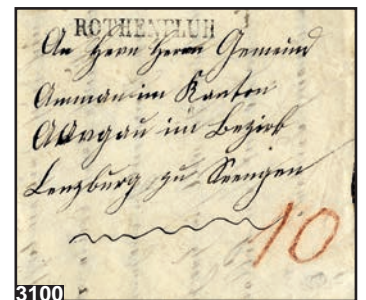 ROTHENFLUH
An Herrn Herrn Gemeind
Amman im Kanton
AArgau im Bezirk
Lenzburg zu Seengen
10
3100